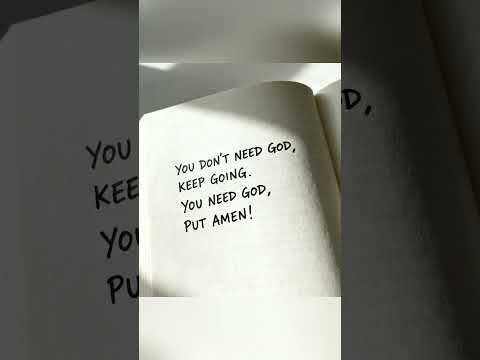 YOU DON'T NEED GOD,
KEEP GOING.
YOU NEED GOD,
PUT AMEN!